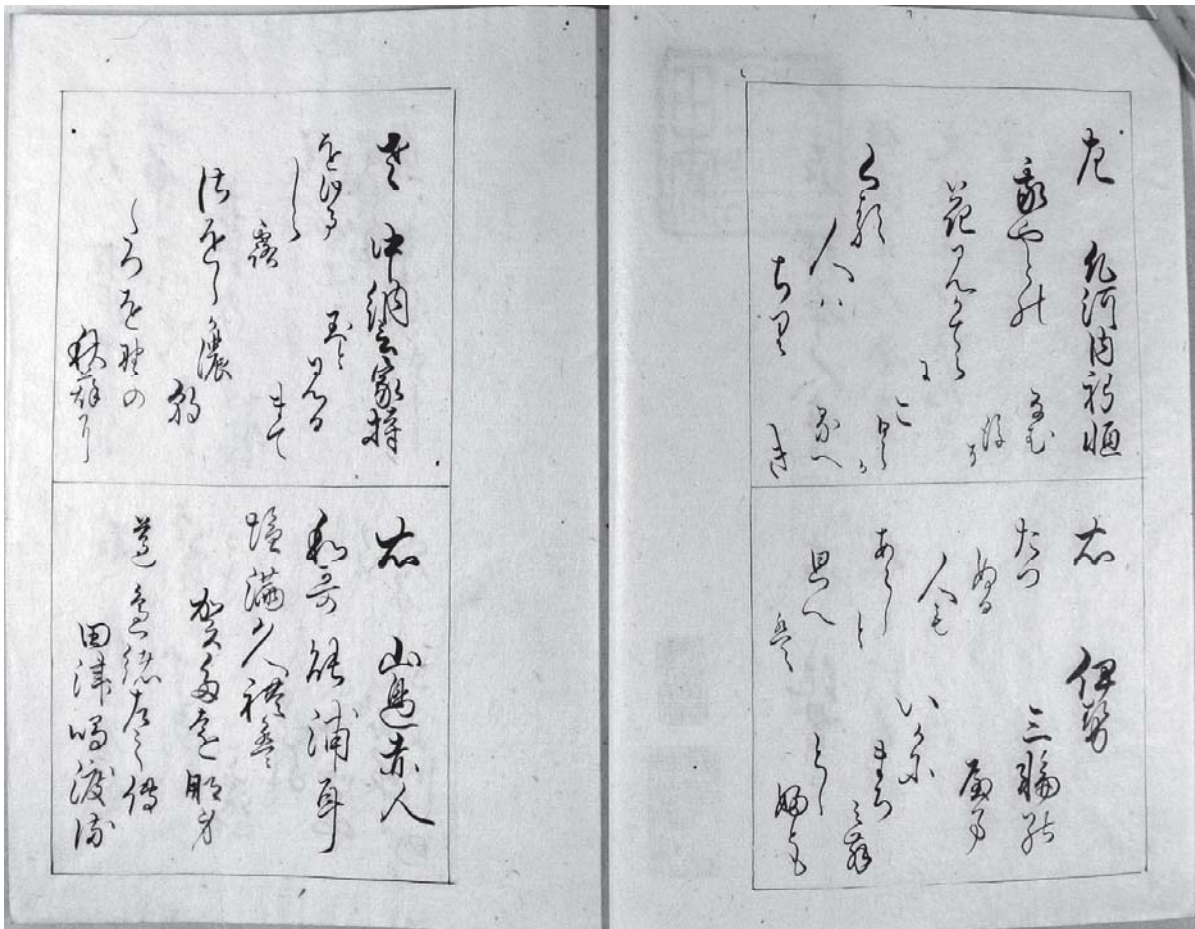 左 凡河内躬恒
我やとの
花見かてら
に
くる
人は
ちり
なむ
後そ
こひしか
るへ
き
右 伊勢
三輪能
山
いかに
まち見む
とし
ふとも
たつ
ぬる
人も
あらしと
思へ
は
左 中納言家持
さをしか濃
朝
たつを野の
秋萩に
玉と
見る
まて
をける
しら
露
右 山邊赤人
和哥能浦耳
塩満久禮者
賀多越無身
葦邊越左之傳
田津鳴渡流